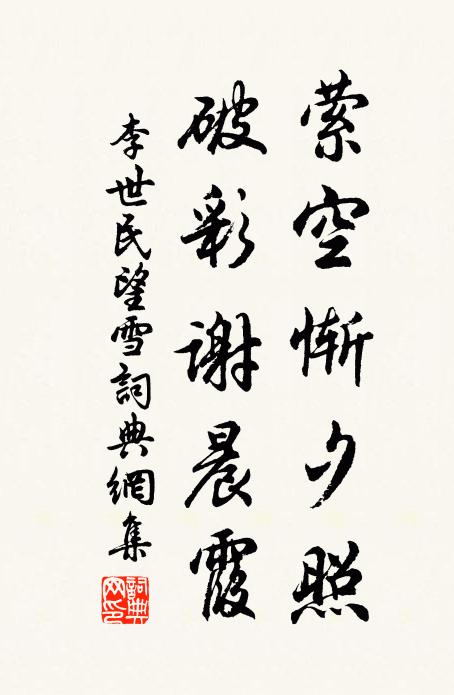 萦空惭夕照
破彩谢晨霞
李世民望雪詞典網集
詞典
网印